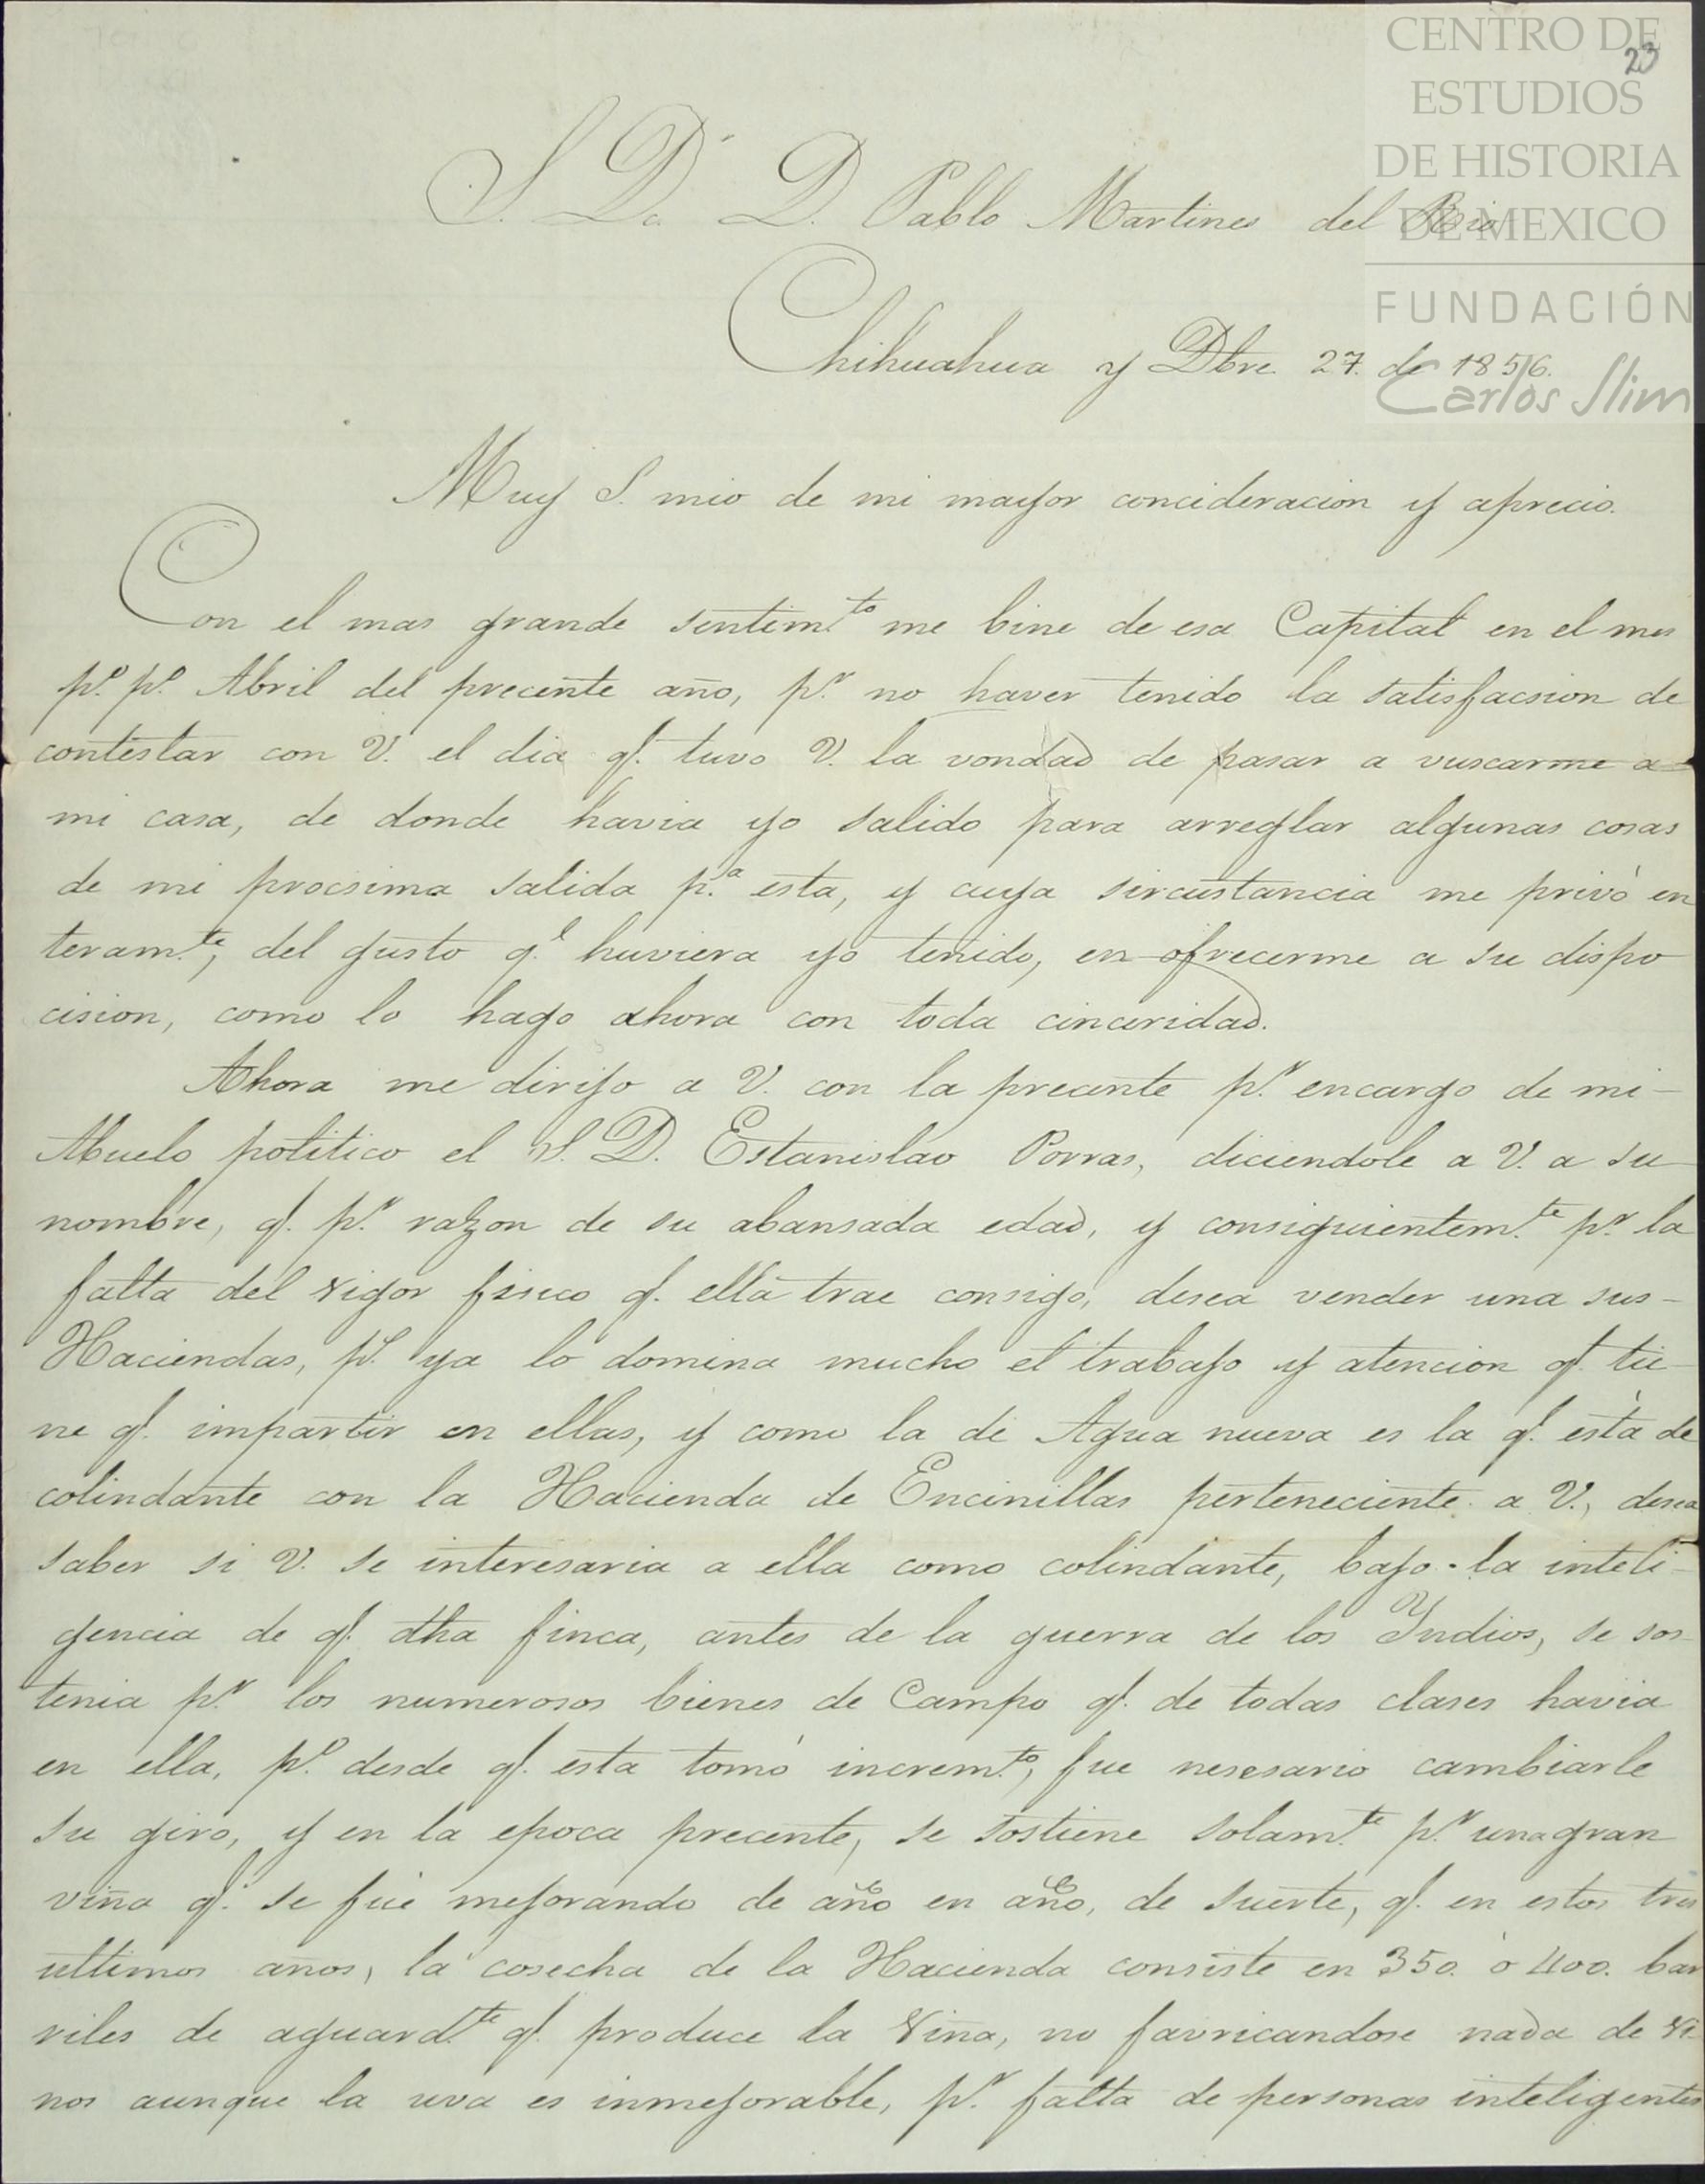 CENTRO DE
ESTUDIOS
DE HISTORIA
DE MEXICO
FUNDACIÓN
Carlos Slim
23
S. D. D. Pablo Martines del Rio
Chihuahua y Dbre. 27. de 1856.
Muy S. mio de mi mayor concideracion y aprecio.
Con el mas grande sentim.to me bine de esa Capital en el mes
p.o p.o Abril del precente año, p.r no haver tenido la satisfacsion de
contestar con V. el dia q. tuvo V. la vondad de pasar a vuscarme a
mi casa, de donde havia yo salido para arreglar algunas cosas
de mi procsima salida p.a esta, y cuya sircustancia me privó en
teram.te, del gusto q.e huviera yo tenido, en ofrecerme a su dispo
cision, como lo hago ahora con toda cinceridad.
Ahora me dirijo a V. con la precente p.r encargo de mi-
Abuelo politico el S. D. Estanislao Porras, diciendole a V. a su
nombre, q. p.r razon de su abansada edad, y consiguientem.te p.r la
falta del vigor fisico q. ella trae consigo, desea vender una sus-
Haciendas, p.s ya lo domina mucho el trabajo y atencion q. tie
ne q. impartir en ellas, y como la de Agua nueva es la q. está de
colindante con la Hacienda de Encinillas perteneciente a V., desea
saber si V. se interesaria a ella como colindante, bajo la inteli-
gencia de q. dha finca, antes de la guerra de los Yndios, se sos-
tenia p.r los numerosos bienes de Campo q. de todas clases havia
en ella, p.o desde q. esta tomó increm.to, fue nesesario cambiarle
su giro, y en la epoca precente, se sostiene solam.te p.r una gran
viña q. se fue mejorando de año en año, de suerte, q. en estos tres
ultimos años, la cosecha de la Hacienda consiste en 350. ó 400. bar
riles de aguard.te q. produce la Viña, no favricandose nada de vi-
nos aunque la uva es inmejorable, p.r falta de personas inteligentes